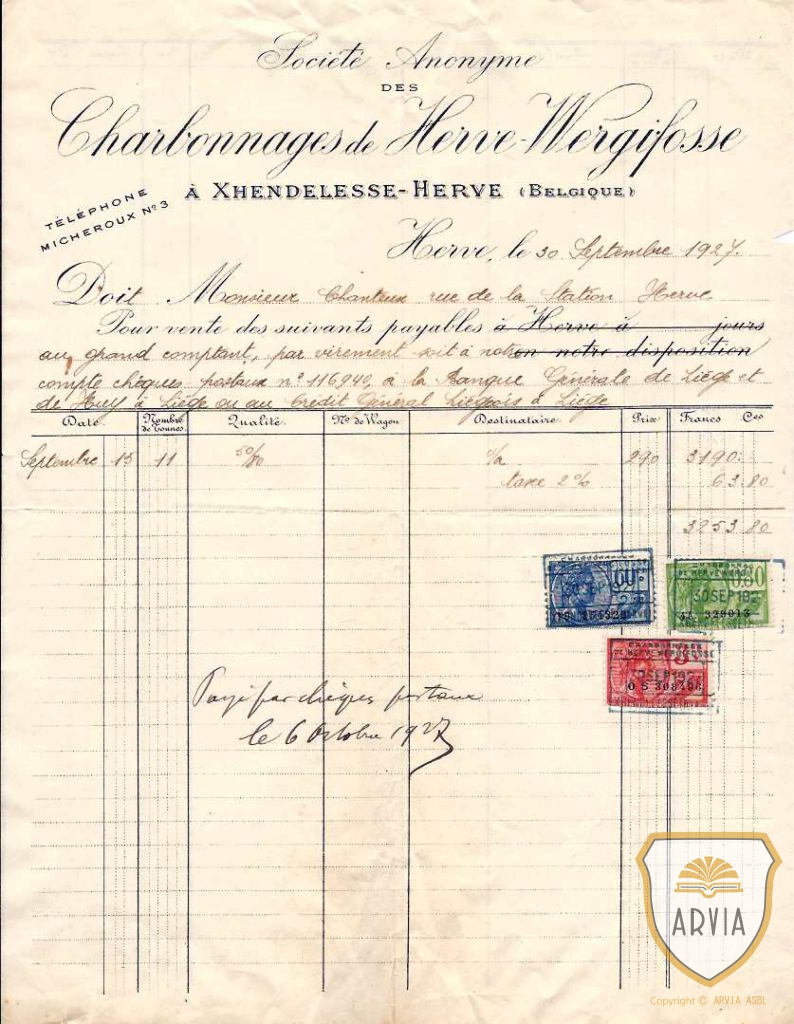 Société Anonyme
DES
Charbonnages de Herve-Wergifosse
À XHENDELESSE-HERVE (BELGIQUE)
TÉLÉPHONE
MICHEROUX Nº 3
Herve, le 30 Septembre 1927.
Doit Monsieur Chanteux rue de la Station Herve
Pour vente des suivants payables à Herve à jours
au grand comptant, par virement soit à notre en notre disposition
compte chèques postaux nº 116940, à la Banque Générale de Liége et
de Huy à Liége ou au Crédit Général Liégeois à Liége
Date Nombre de Tonnes Qualité Nº de Wagon Destinataire Prix Francs Ces
Septembre 15 11 50/80 290 3190.
taxe 2% 63.80
3253.80
CHARBONNAGES
60c
30 SEP
CHARBONNAGES
DE HERVE-WERGIFOSSE
0.80
30 SEP 192
329013
CHARBONNAGES
DE HERVE-WERGIFOSSE
30 SEP 192
O S 308456
Payé par chèques postaux
le 6 Octobre 1927
ARVIA
Copyright © ARVIA ASBL